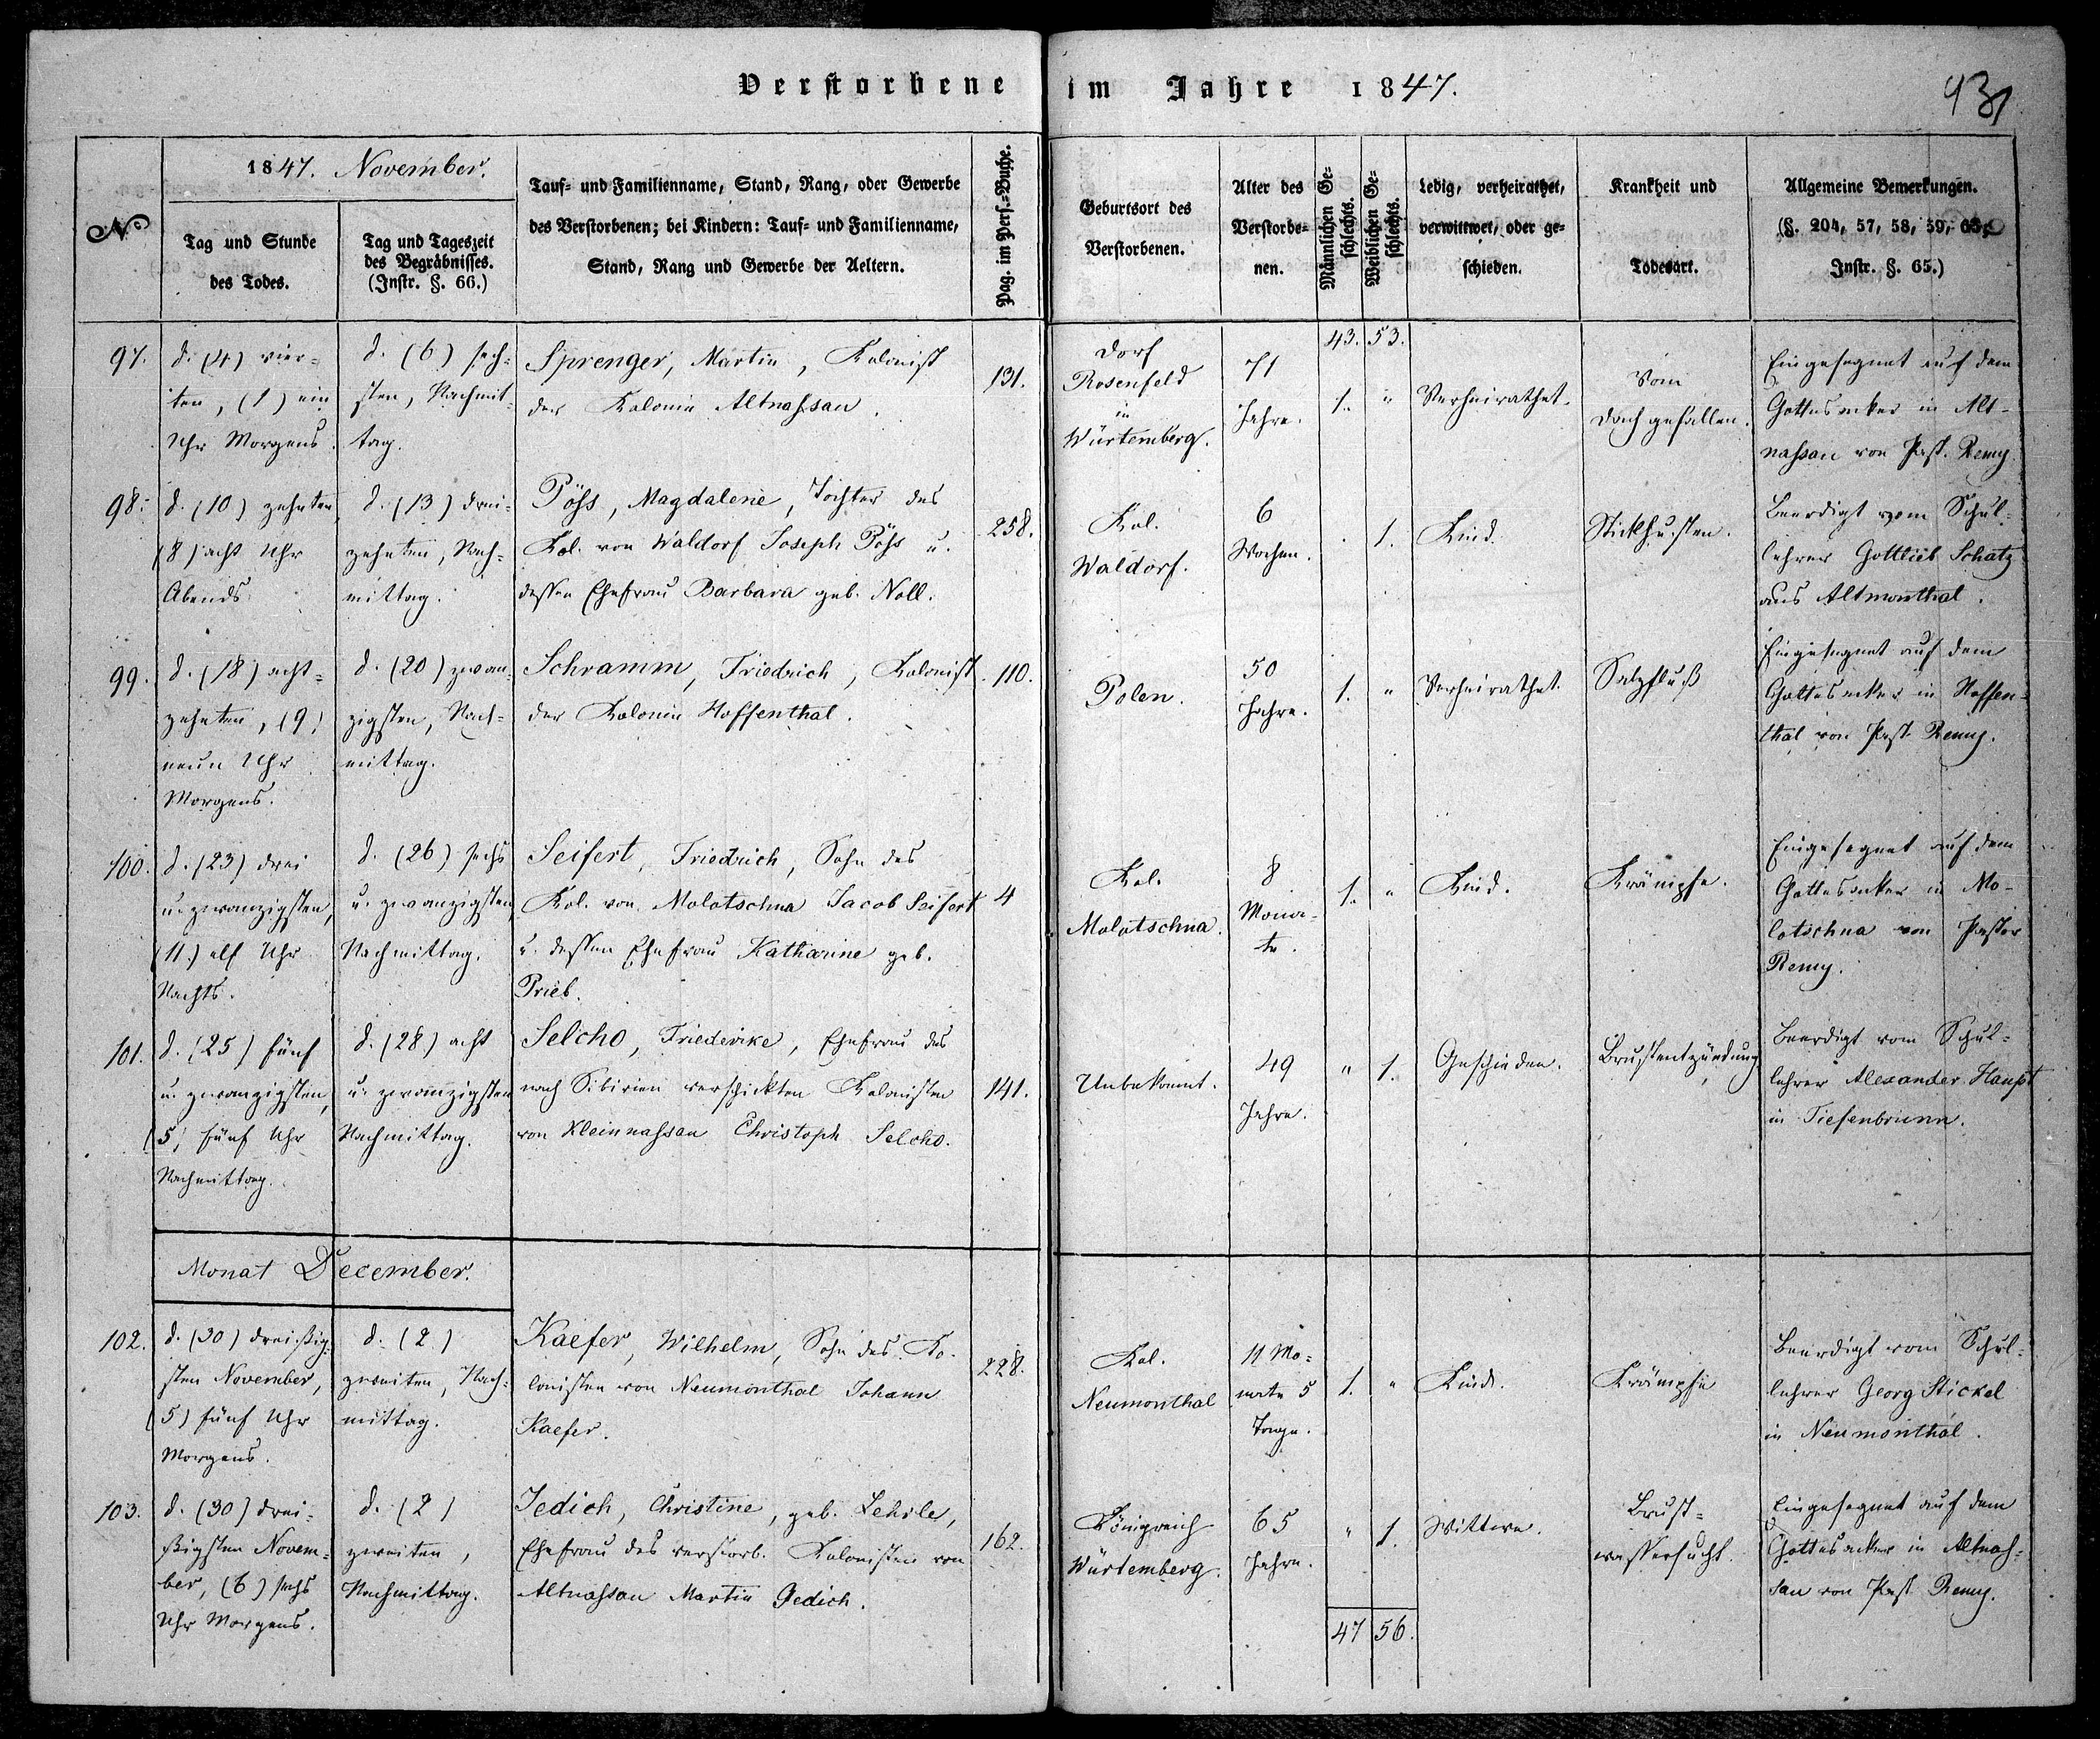 Verstorbene im Jahre 1847.
431
No
1847. November.
Tag und Stunde
des Todes.
Tag und Tageszeit
des Begräbnisses.
(Instr. §. 66.)
Tauf= und Familienname, Stand, Rang, oder Gewerbe
des Verstorbenen; bei Kindern: Tauf= und Familienname,
Stand, Rang und Gewerbe der Aeltern.
Pag. im Pers.=Buche.
Geburtsort des
Verstorbenen.
Alter des
Verstorbe=
nen.
Männlichen Ge=
schlechts.
Weiblichen Ge=
schlechts.
Ledig, verheirathet,
verwittwet, oder ge=
schieden.
Krankheit und
Todesart.
Allgemeine Bemerkungen.
(§. 204, 57, 58, 59,
Instr. §. 65.)
43. 53.
97.
d. (4) vier=
ten, (1) ein
Uhr Morgens.
d. (6) sech=
sten, Nachmit=
tag.
Sprenger, Martin, Kolonist
der Kolonie Altnassau.
131.
Dorf
Rosenfeld
in
Würtemberg.
71
Jahre.
1.
"
Verheirathet.
Vom
Dach gefallen.
Eingesegnet auf dem
Gottesacker in Alt-
nassau von Past. Remy
98.
d. (10) zehnten,
(8) acht Uhr
Abends.
d. (13) drei=
zehnten, Nach=
mittag.
Pöss, Magdalene, Tochter des
Kol. von Waldorf Joseph Pöss u.
dessen Ehefrau Barbara geb. Noll.
258.
Kol.
Waldorf.
6
Wochen.
.
1.
Kind.
Stickhusten.
Beerdigt vom Schul=
lehrer Gottlieb Schatz
aus Altmonthal.
99.
d. (18) acht=
zehnten, (9)
neun Uhr
Morgens.
d. (20) zwan=
zigsten, Nach=
mittag.
Schramm, Friedrich, Kolonist
der Kolonie Hoffenthal.
110.
Polen.
50
Jahre.
1.
"
Verheirathet.
Salzfluß
Eingesegnet auf dem
Gottesacker in Hoffen-
thal von Past. Remy.
100.
d. (23) drei
u. zwanzigsten,
(11.) elf Uhr
Nachts.
d. (26) sechs
u. zwanzigsten,
Nachmittag.
Seifert, Friedrich, Sohn des
Kol. von Molotschna Jacob Seifert
u. dessen Ehefrau Katharine geb.
Prieb.
4
Kol.
Molotschna.
8
Mona=
te.
1.
"
Kind.
Krämpfe.
Eingesegnet auf dem
Gottesacker in Mo-
lotschna von Pastor
Remy.
101.
d. (25) fünf
u. zwanzigsten,
(5) fünf Uhr
Nachmittag.
d. (28) acht
u. zwanzigsten
Nachmittag.
Selcho, Friederike, Ehefrau des
nach Sibirien verschickten Kolonisten
von Kleinnassau Christoph Selcho.
141.
Unbekannt.
49
Jahre.
"
1.
Geschieden.
Brustentzündung
Beerdigt vom Schul=
lehrer Alexander Haupt
in Tiefenbrunn.
Monat December.
102.
d. (30) dreißig=
sten November,
(5) fünf Uhr
Morgens.
d. (2)
zweiten, Nach=
mittag.
Kaefer, Wilhelm, Sohn des Ko-
lonisten von Neumonthal Johann
Kaefer.
228.
Kol.
Neumonthal
11 Mo=
nate 5
Tage.
1.
"
Kind.
Krämpfe
Beerdigt vom Schul=
lehrer Georg Stickel
in Neumonthal.
103.
d. (30) drei=
ßigsten Novem=
ber, (6) sechs
Uhr Morgens.
d. (2)
zweiten,
Nachmittag.
Jedich, Christine, geb. Lehrle,
Ehefrau des verstorb. Kolonisten von
Altnassau Martin Jedich.
162.
Königreich
Würtemberg.
65
Jahre.
"
1.
Wittwe.
Brust=
wassersucht.
Eingesegnet auf dem
Gottesacker in Altnas=
sau von Past. Remy.
47 56.